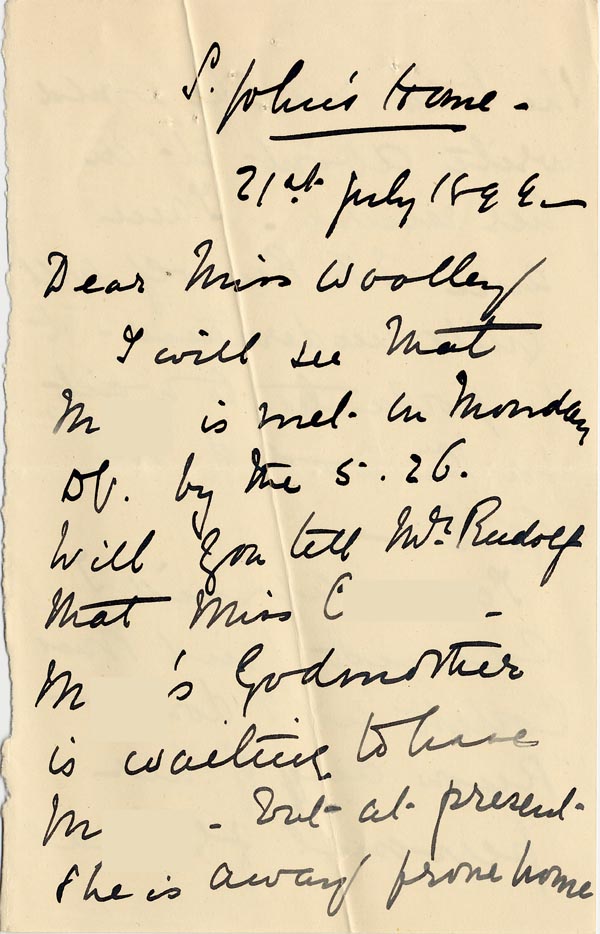 S. John's Home -
21st July 1899 -
Dear Miss Woolley
I will see that
M is met on Monday
by the 5.26.
Will you tell Mr. Rudolf
that Miss C -
M 's Godmother
is waiting to have
M - but at present
she is away from home